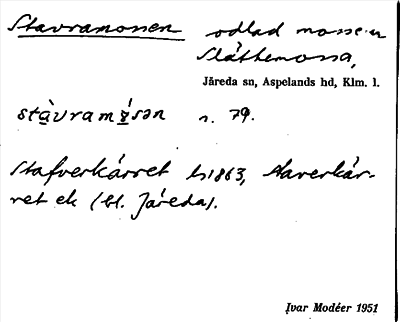 Stavramossen odlad mosse:n
Slättemossa,
Järeda sn, Aspelands hd, Klm. l.
stàvramåsən n. 79.
Stafverkärret hs 1863, Staverkär-
ret ek (bl. Järeda).
Ivar Modéer 1951